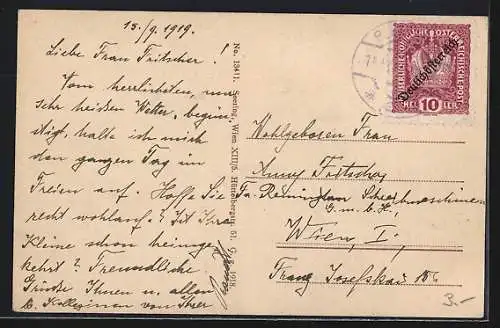 15./9. 1919.
Liebe Frau Fritscher!
Vom herrlichsten, nur
sehr heißen Wetter, begün-
stigt, halte ich mich
den ganzen Tag im
Freien auf. Hoffe Sie
recht wohlauf? Ist Ihre
Kleine schon heimge-
kehrt? Freundliche
Grüße Ihnen u. allen
b. Kolleginnen von Ihrer
No. 13411. Seering, Wien XIII/6. Hüttelbergstr. 51. 1918
KAISERLICHE KÖNIGLICHE ÖSTERREICHISCHE POST
Deutschösterreich
HEL 10 LER
Wohlgeboren Frau
Anny Fritscher
Fa. Remington Schreibmaschinen
G.m.b.H.,
Wien, I.,
Franz Josefskai
3.-